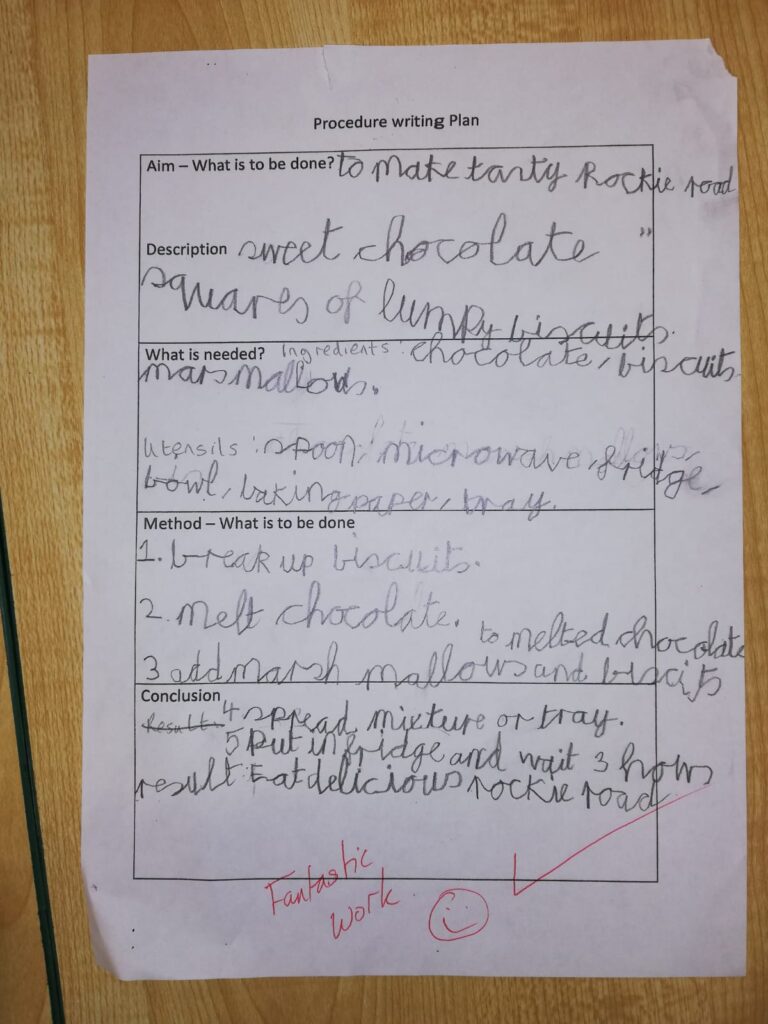 Procedure writing Plan
Aim – What is to be done? to make tasty Rockie road
Description sweet chocolate "
squares of lumpy biscuits.
What is needed? Ingredients: chocolate, biscuits
marsmallows.
Utensils: spoon, microwave, fridge,
bowl, baking paper, tray.
Method – What is to be done
1. break up biscuits.
2. melt chocolate.
to melted chocolate
3 add marsh mallows and biscits
Conclusion
Result 4 spread mixture or tray.
5 Put in fridge and wait 3 hours
result Eat delicious rockie road
Fantastic
Work